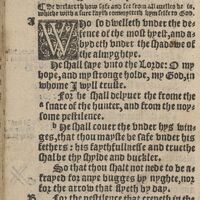 ¶ He declareth how safe and sure from all euelles he is,
whiche with a sure fayth commytteth hymselfe to God.
WHo so dwelleth vnder the defence of the most hyest, and a-
bydeth vnder the shadowe of
the almyghtye.
He shall saye vnto the Lorde: O my
hope, and my stronge holde, my God, in
whome I wyll truste.
For he shall delyuer the frome the
snare of the hunter, and from the noy-
some pestilence.
b He shall couer the vnder hys win-
ges, that thou mayste be safe vnder his
fethers: his faythfullnesse and trueth
shal be thy shylde and buckler.
So that thou shalt not nede to be a-
frayed for anye bugges by nyghte, nor
for the arrow that flyeth by day.
For the pestilence that crepeth in the